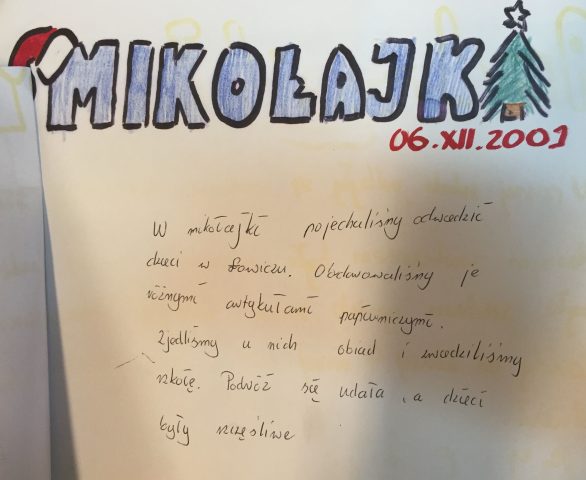 MIKOŁAJK
06.XII.2001
W mikołajki pojechaliśmy odwiedzić
dzieci w Łowiczu. Obdarowaliśmy je
różnymi artykułami papierniczymi.
Zjedliśmy u nich obiad i zwiedziliśmy
szkołę. Podróż się udała, a dzieci
były szczęśliwe